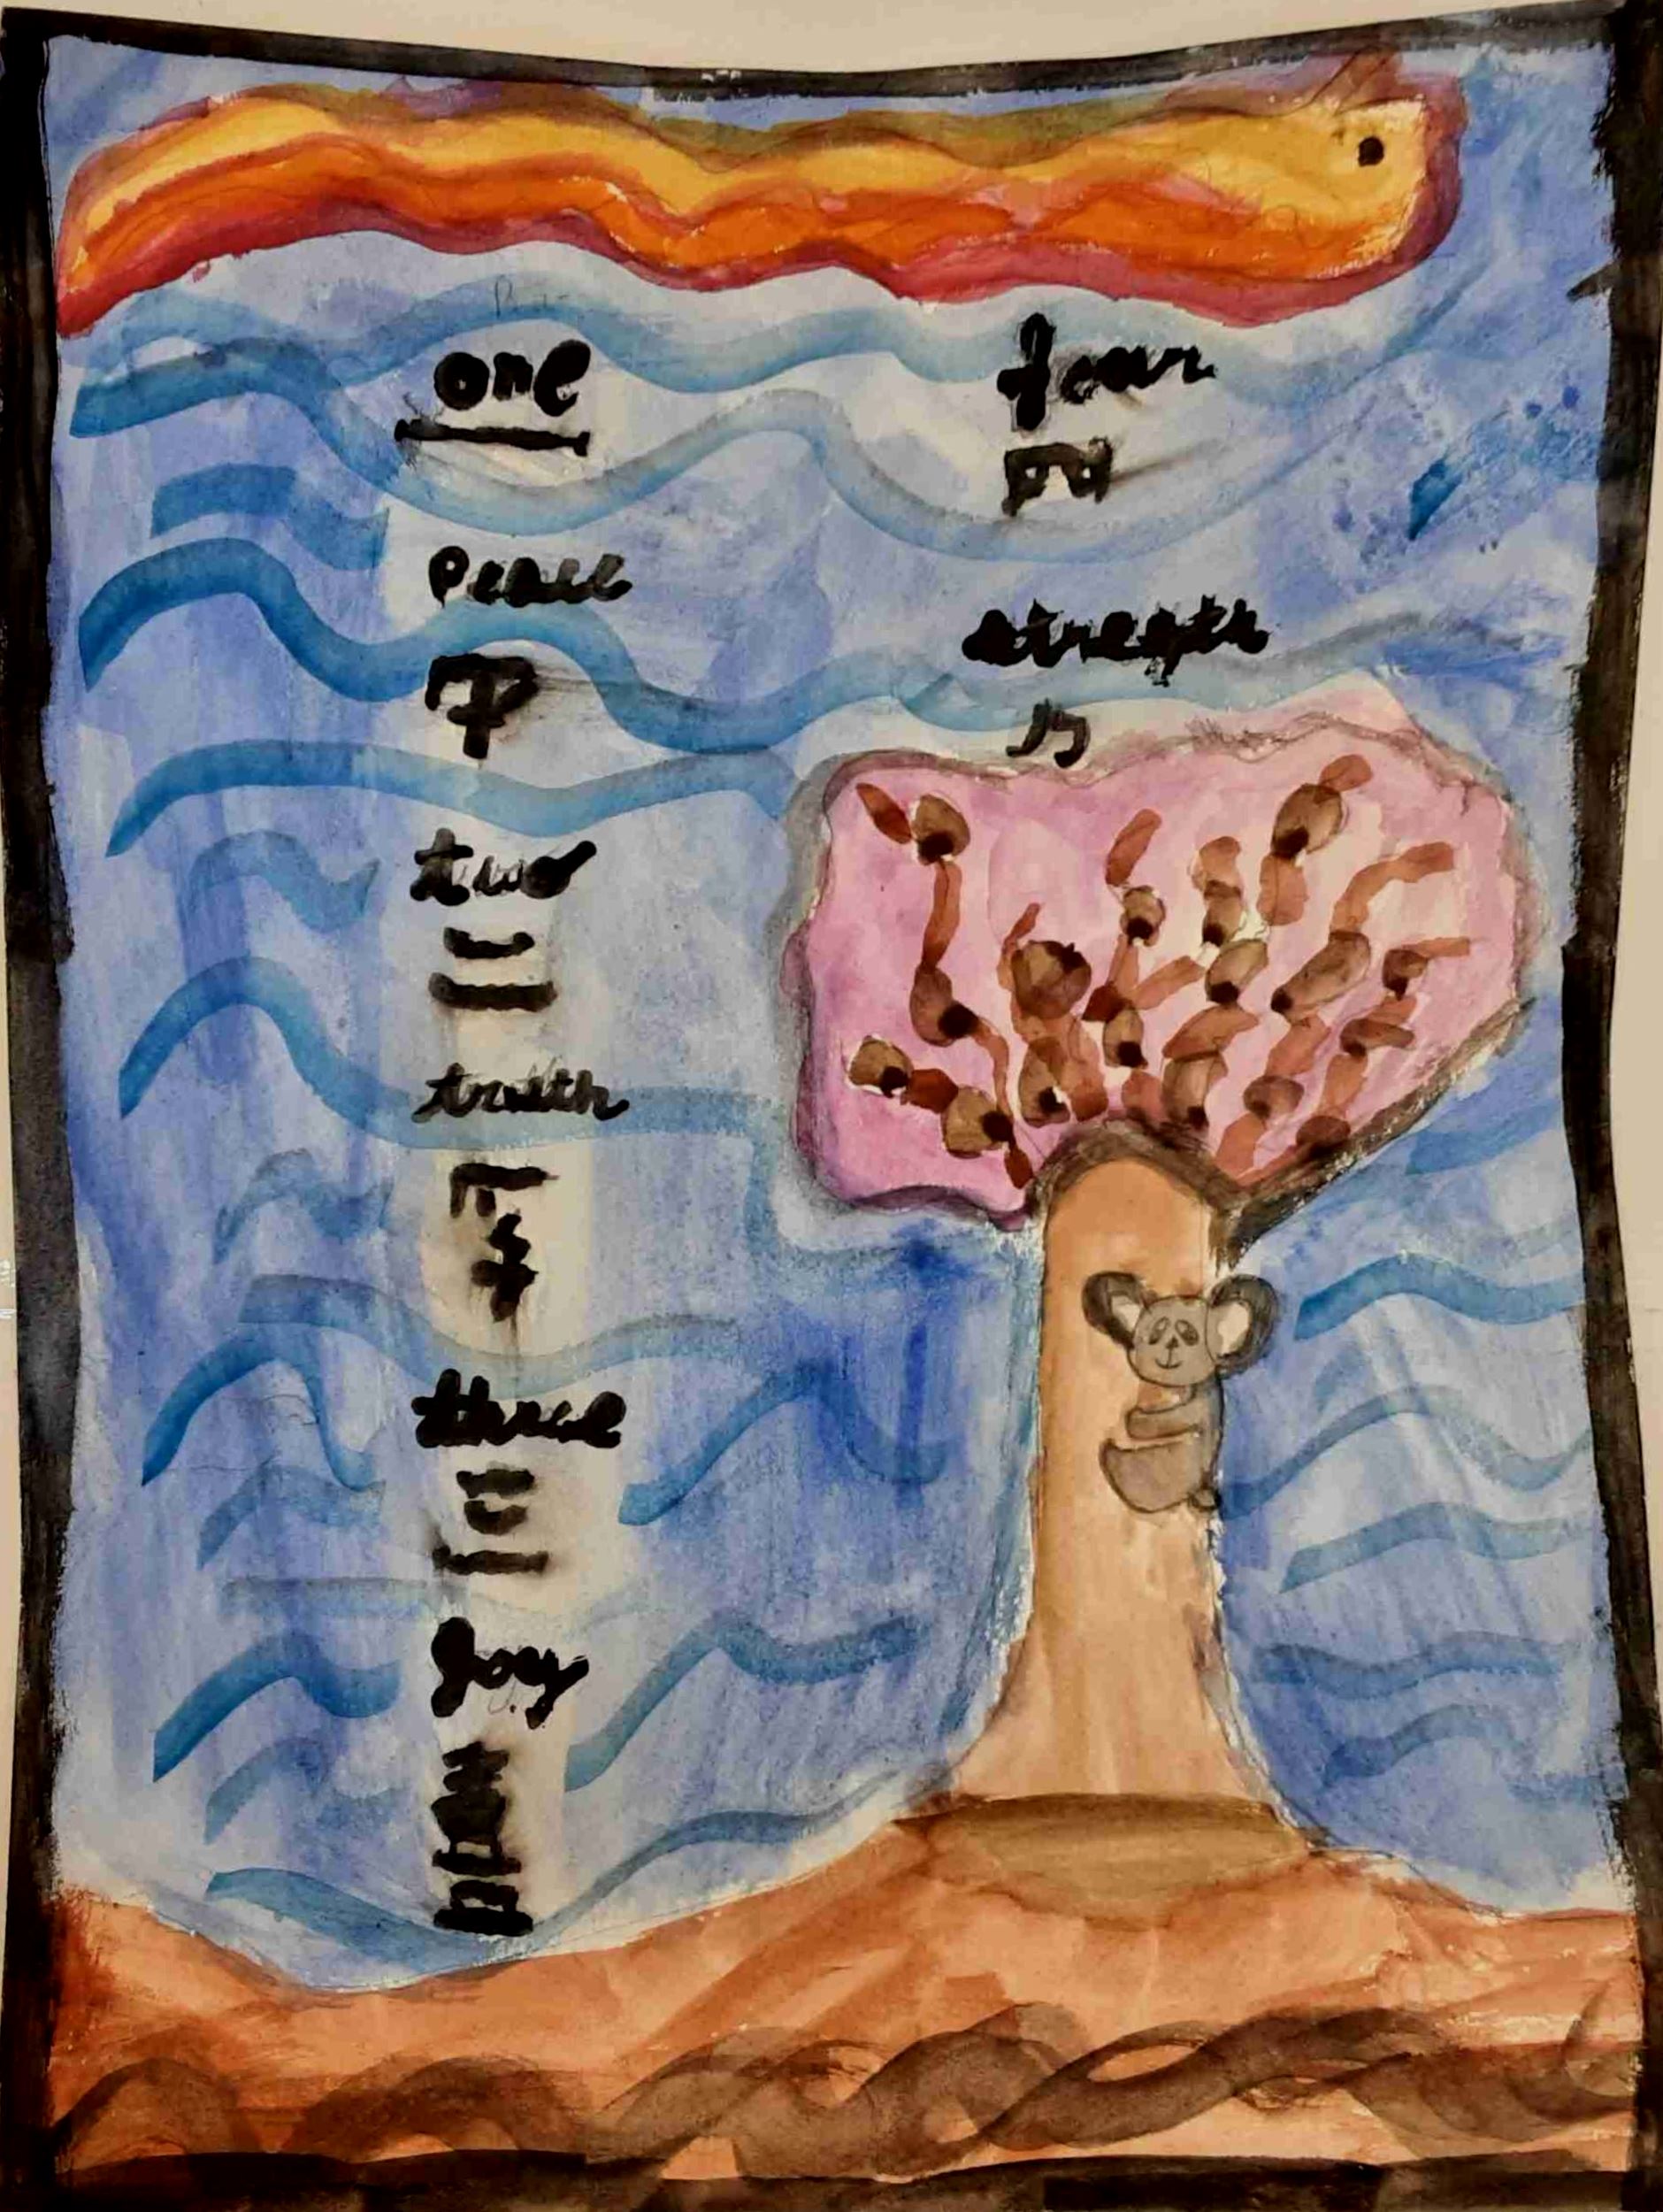 one
一
peace
平
two
二
truth
three
三
joy
four
四
力